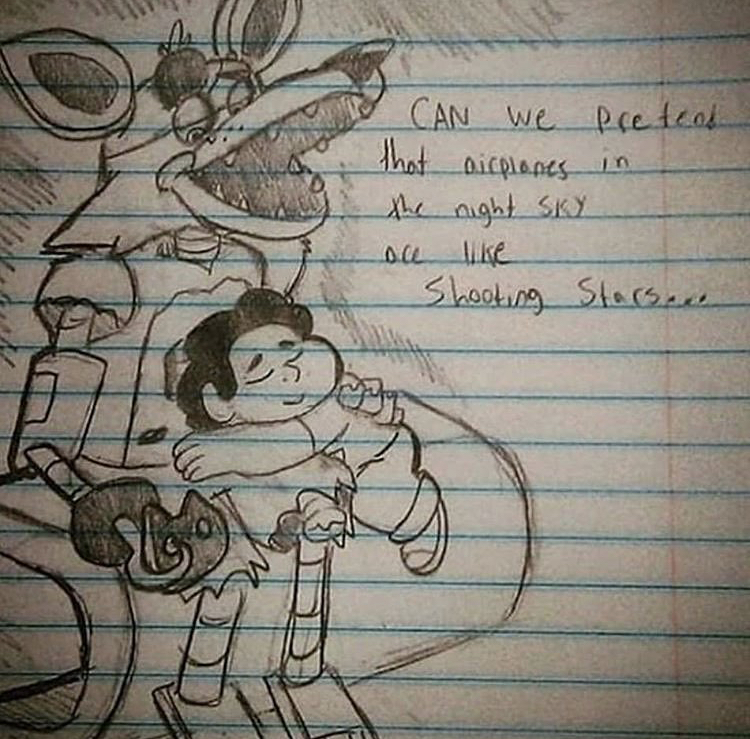 CAN we pretend
that airplanes in
the night SKY
are like
Shooting Stars...